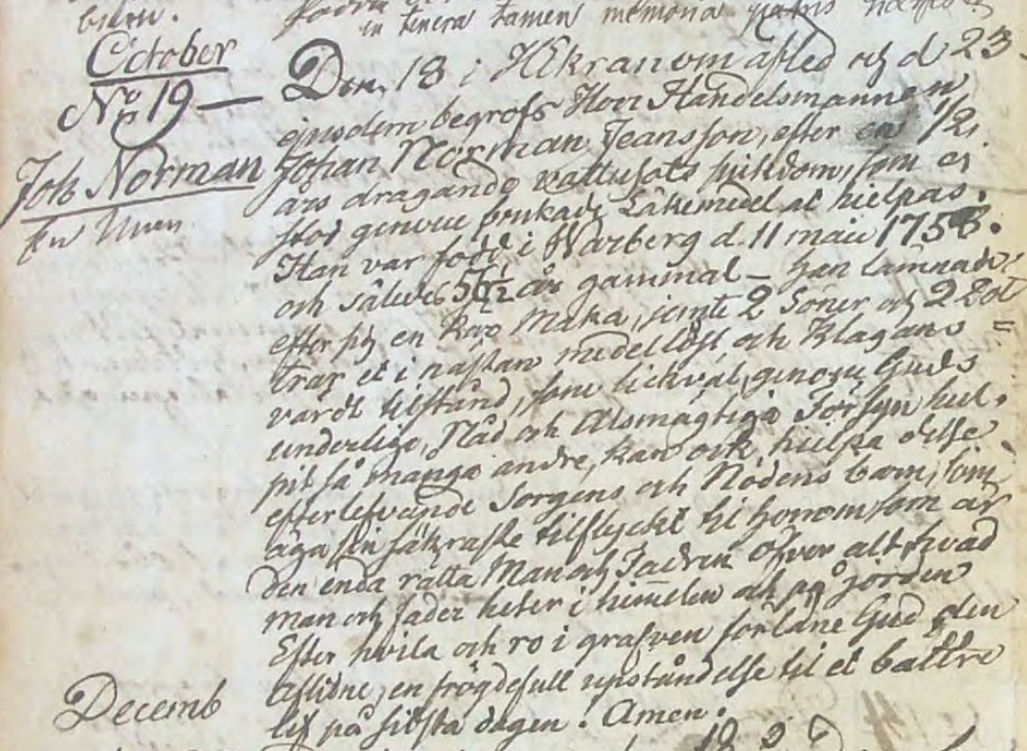 in tenera tamen memoria
October
No 19 —
Joh Norman
Den 18 i afled och d 23
ejusdem begrofs Herr Handelsmannen
Johan Norman Jeansson, efter en 1/2
års dragande vattusots siukdom, som ei
stod genom brukade Läkemedel at hielpas.
Han var född i Warberg d. 11 maii 1758.
och således 56 1/2 år gammal — han lämnade
efter sig en kär Maka, jemte 2 Söner och 2 Döt
trar et i nästan medellöst och klagans =
värdt tilstånd, som likväl, genom Guds
underliga Nåd och Alsmägtiga Försyn hul.
pit så många andre, kan ock hielpa desse
efterlefvande Sorgens och Nödens barn, som
äga sin säkraste tilflyckt til honom som är
den enda rätta Man och Fadren öfver alt hvad
man och fader heter i himmelen och på jorden
Efter hvila och ro i grafven förläne Gud den
aflidne, en frögdefull upståndelse til et bättre
lif på sidsta dagen. Amen.
Decemb